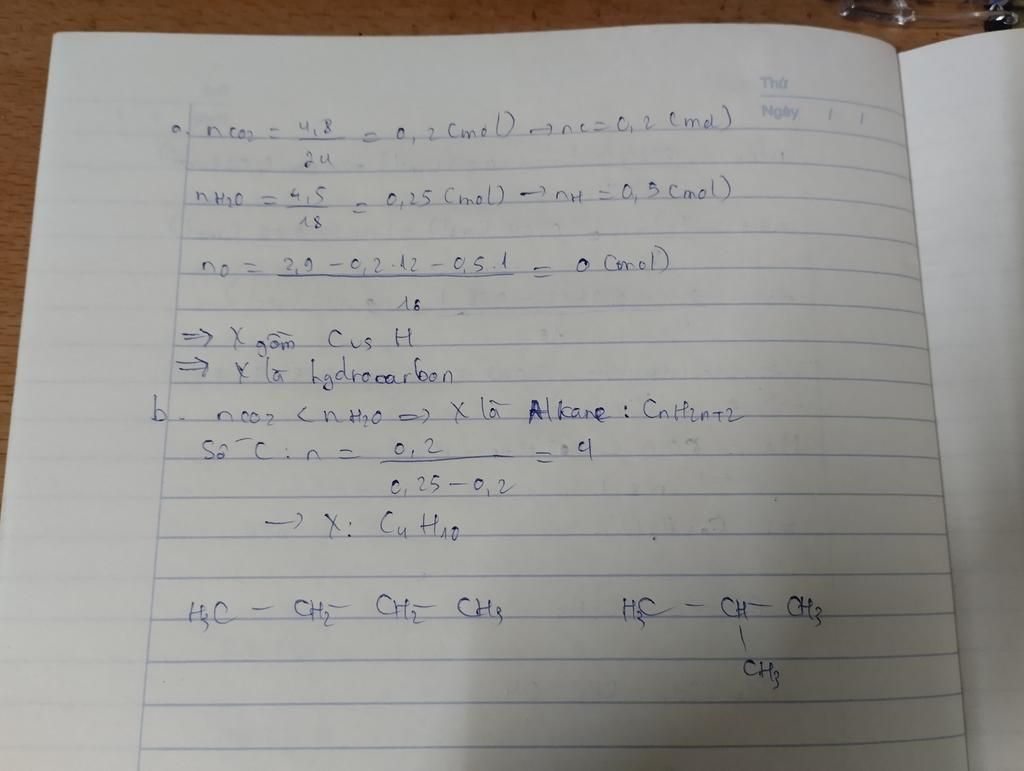 Thứ
Ngày / /
a. nCO2 = 4,8 / 24 = 0,2 (mol) → nC = 0,2 (mol)
nH2O = 4,5 / 18 = 0,25 (mol) → nH = 0,5 (mol)
nO = 2,9 - 0,2.12 - 0,5.1 / 16 = 0 (mol)
⇒ X gồm C và H
⇒ X là hydrocarbon
b. nCO2 < nH2O ⇒ X là Alkane : CnH2n+2
Số C : n = 0,2 / 0,25 - 0,2 = 4
→ X: C4H10
H3C - CH2 - CH2 - CH3 H3C - CH - CH3
CH3